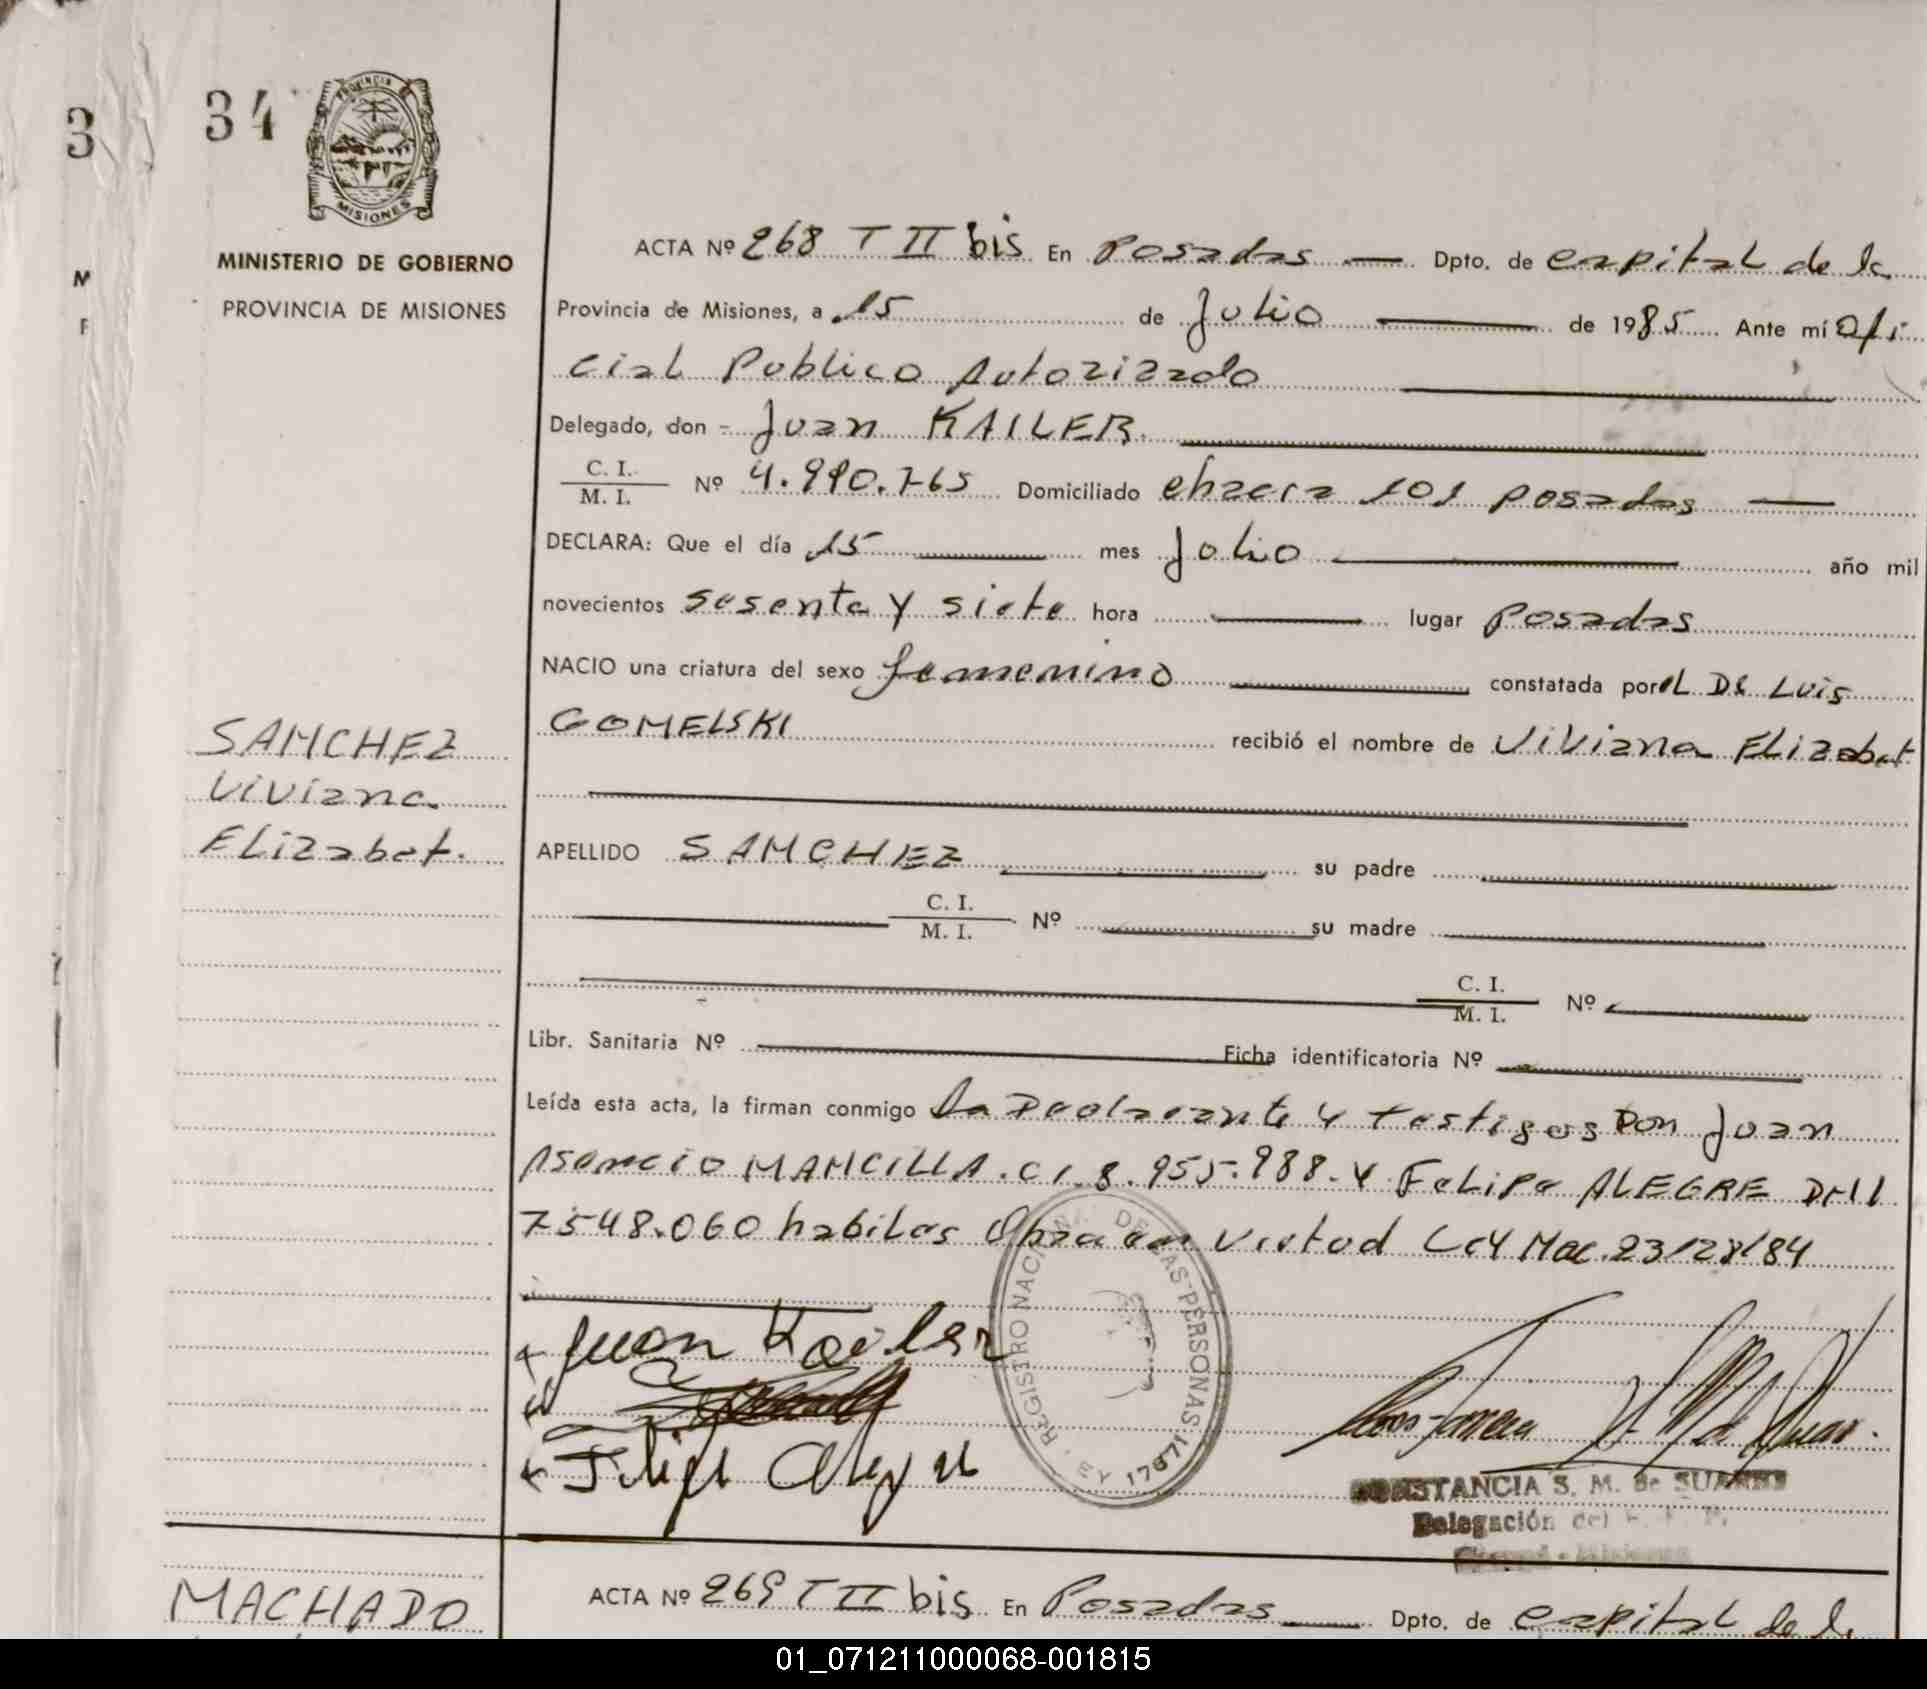 3
34
PROVINCIA
MISIONES
MINISTERIO DE GOBIERNO
PROVINCIA DE MISIONES
M
F
ACTA Nº 268 T II bis En Posadas — Dpto. de capital de la
Provincia de Misiones, a 15 de Julio — de 1985 Ante mí Ofi
cial Publico Autorizado
Delegado, don - Juan KAILER.
C. I.
M. I. Nº 4.990.765 Domiciliado chacra 101 Posadas —
DECLARA: Que el día 15 — mes Julio — año mil
novecientos sesenta y siete hora — lugar Posadas
NACIO una criatura del sexo femenino — constatada por el DR Luis
GOMELSKI recibió el nombre de Viviana Elizabet
SANCHEZ
Viviana
Elizabet.
APELLIDO SANCHEZ — su padre —
C. I.
M. I. Nº — su madre —
C. I.
M. I. Nº —
Libr. Sanitaria Nº — Ficha identificatoria Nº —
Leída esta acta, la firman conmigo la Declarante y testigos Don Juan
Asencio MANCILLA. CI. 8.955.988. y Felipe ALEGRE DMI
7548.060 habiles Obra en Virtud Ley Nac. 23/28/84
Juan Kailer
Felipe Alegre
REGISTRO NACIONAL DE LAS PERSONAS
LEY 17671
CONSTANCIA S. M. de SUAREZ
Delegación del
MACHADO
ACTA Nº 269 T II bis En Posadas — Dpto. de capital de la
01_071211000068-001815